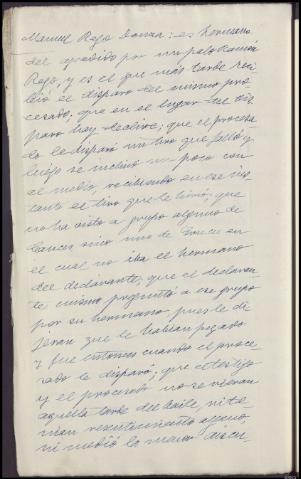 Manuel Rego Souza: es hermano
del agredido por un palo Ramón
Rego, y es el que más tarde reci
bió el disparo del mismo pro
cesado, que en el lugar del dis
paro hay declive; que el procesa
do le disparó un tiro que falló y
luego se inclinó un poco con
el medio, recibiendo en ese ins
tante el tiro que le hirió; que
no ha visto a grupo alguno de
sino uno de Ences en
el cual no iba el hermano
del declarante, que el declaran
te mismo preguntó a ese grupo
por su hermano pues le di
jeron que le habían pegado
y fue entonces cuando el proce
sado le disparó; que el testigo
y el procesado no se vieran
aquella tarde del baile, ni te
nían resentimiento alguno,
ni medió la menor discu